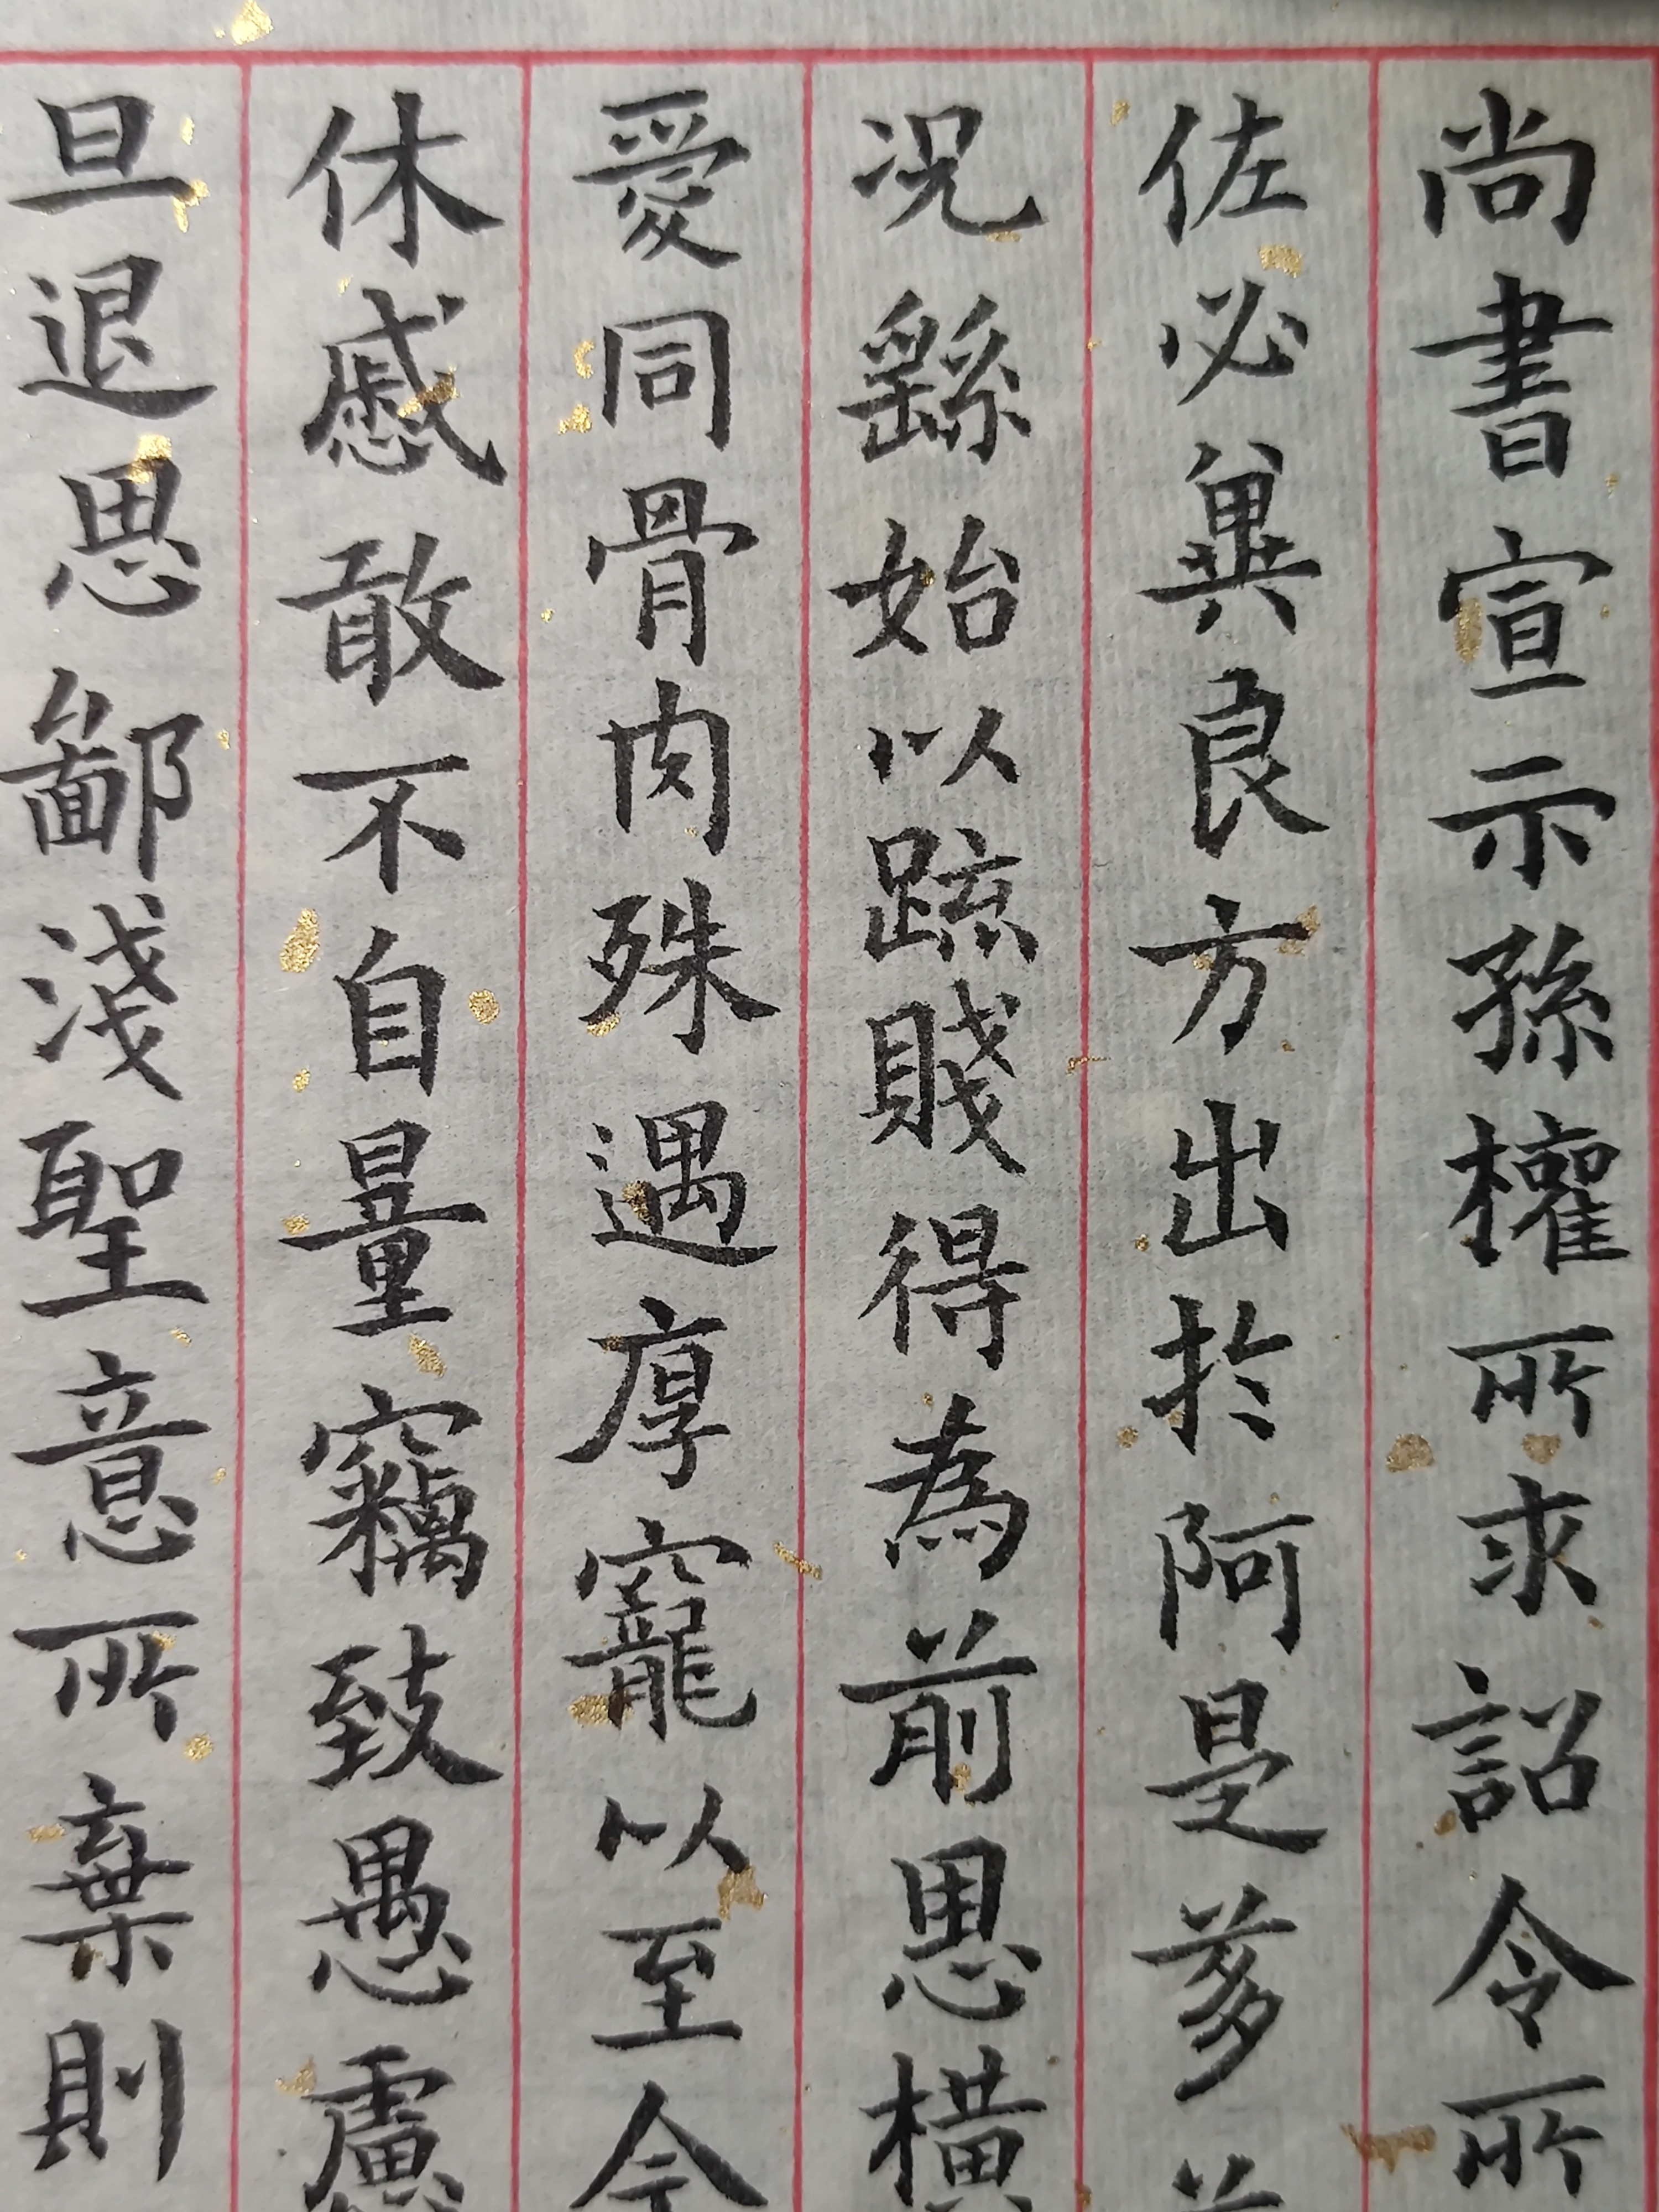 尚書宣示孫權所求詔令所
佐必兾良方出於阿是蒭
况繇始以踈賤得為前恩橫
愛同骨肉殊遇厚寵以至今
休慼敢不自量竊致愚慮
旦退思鄙淺聖意所棄則